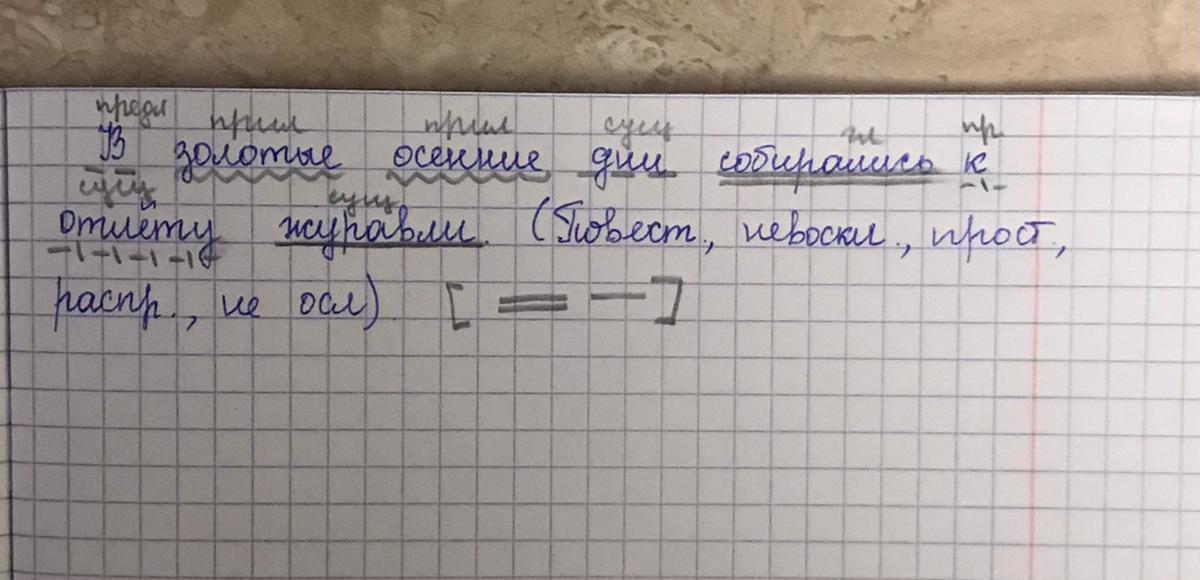 предл прил прил сущ гл пр
В золотые осенние дни собирались к
сущ сущ
отлёту журавли. (Повест., невоскл., прост.,
распр., не осл). [ ]